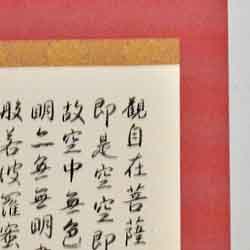 觀自在菩薩
即是空空即
故空中無色
明亦無無明
般若波羅蜜